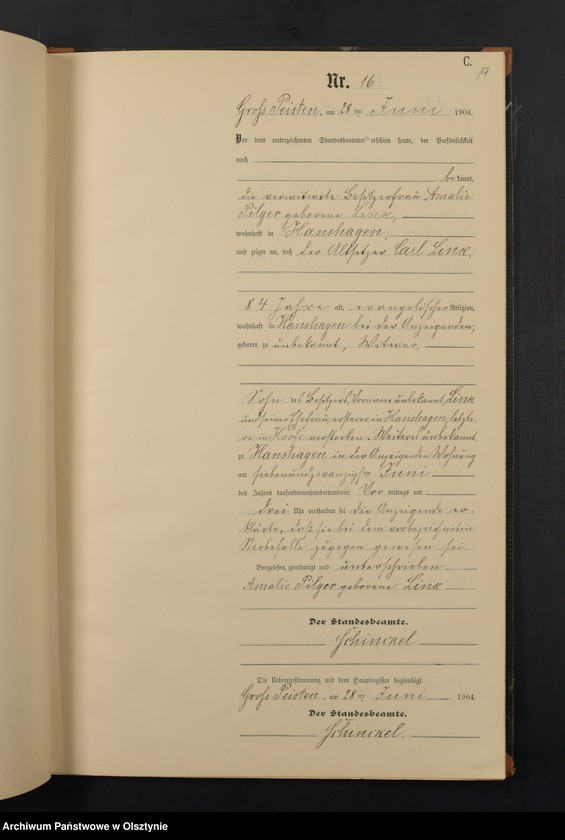 C.
17
Nr. 16
Groß Peisten, am 28 ten Juni 1904.
Vor dem unterzeichneten Standesbeamten erschien heute, der Persönlichkeit
nach
bekannt,
die verwitwete Besitzerfrau Amalie
Pilger geborene Link,
wohnhaft in Hanshagen,
und zeigte an, daß der Altsitzer Carl Link,
84 Jahre alt, evangelischer Religion,
wohnhaft in Hanshagen bei der Anzeigenden,
geboren zu unbekannt, Witwer,
Sohn des Besitzers, Vorname unbekannt, Link
und seiner Ehefrau, ersterer in Hanshagen, letzte-
re in verstorben. Weiteres unbekannt
zu Hanshagen in der Anzeigenden Wohnung
am siebenundzwanzigsten Juni
des Jahres tausendneunhundertundvier Vor mittags um
drei Uhr verstorben sei die Anzeigende er-
klärte, daß sie bei dem vorbezeichneten
Sterbefalle zugegen gewesen sei.
Vorgelesen, genehmigt und unterschrieben
Amalie Pilger geborene Link
Der Standesbeamte.
Schinckel
Die Uebereinstimmung mit dem Hauptregister beglaubigt.
Groß Peisten, am 28 ten Juni 1904.
Der Standesbeamte.
Schinckel.
Archiwum Państwowe w Olsztynie